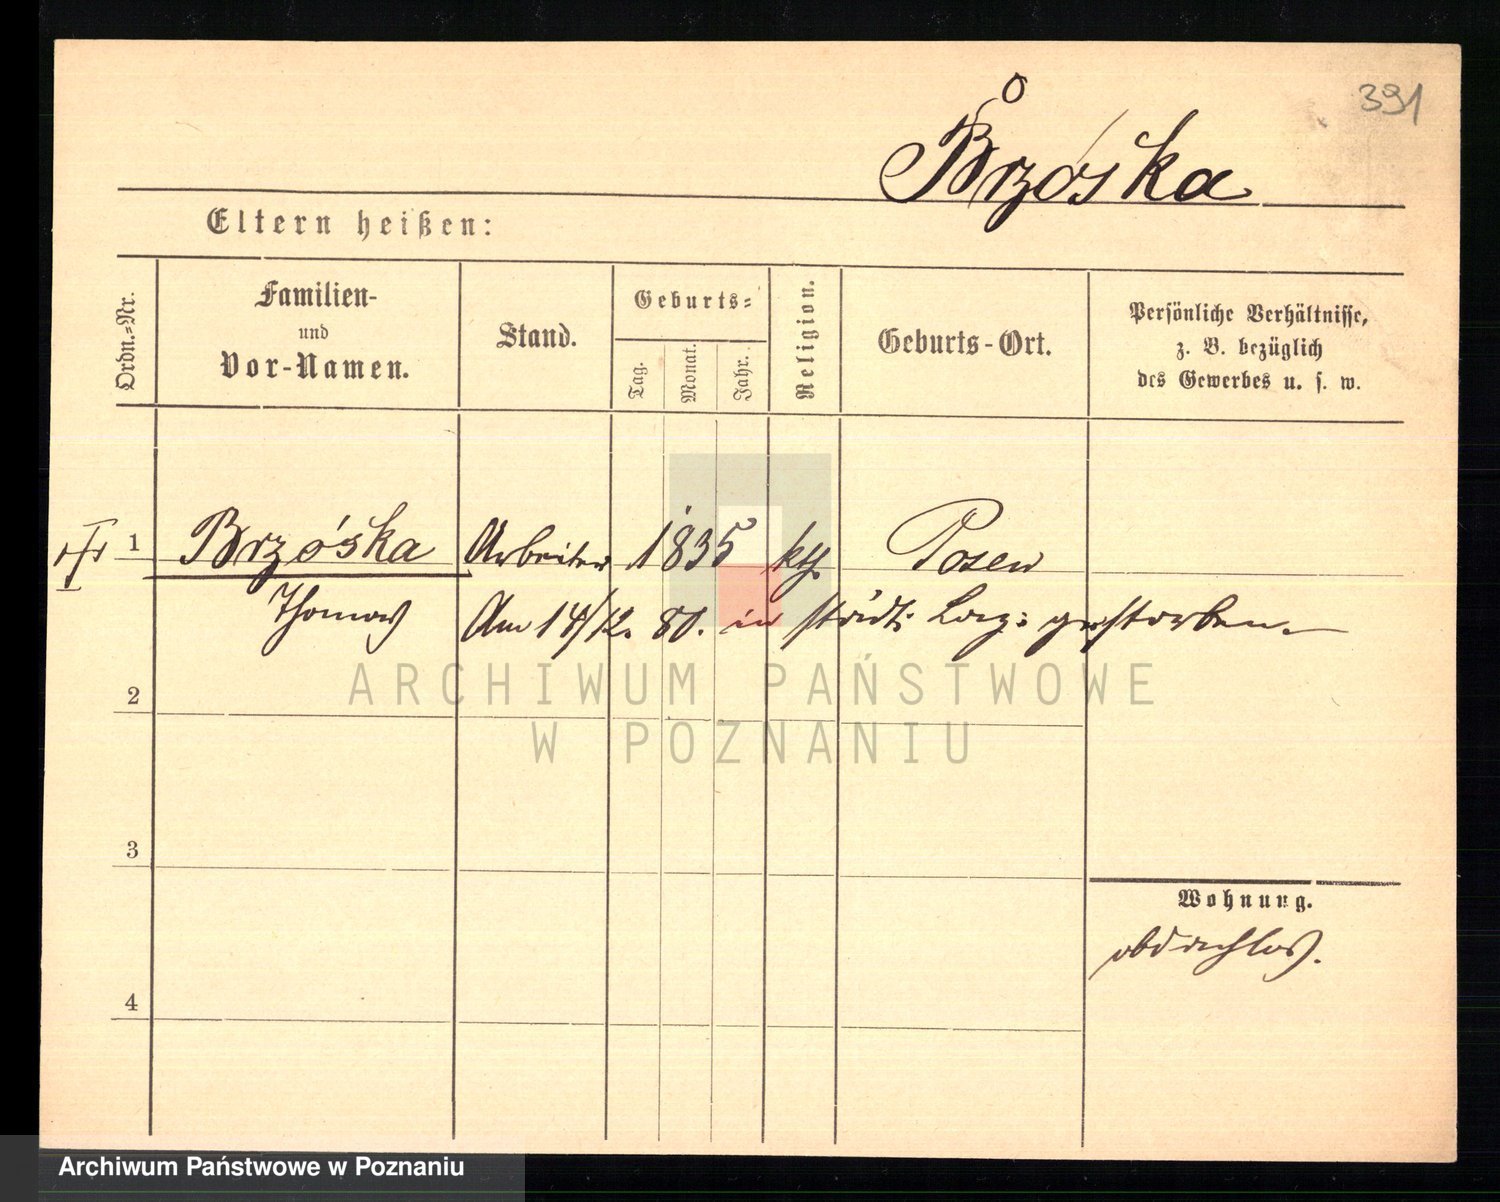 391
Brzóska
Eltern heißen:
Ordn.-Nr.
Familien-
und
Vor-Namen.
Stand.
Geburts-
Tag.
Monat.
Jahr.
Religion.
Geburts-Ort.
Persönliche Verhältnisse,
z. B. bezüglich
des Gewerbes u. s. w.
1 Brzóska Arbeiter 1835 kth. Posen
Thomas Am 14/12. 80. in städt: Laz: gestorben.
ARCHIWUM PAŃSTWOWE
W POZNANIU
2
3
Wohnung.
obdachlos.
4
Archiwum Państwowe w Poznaniu